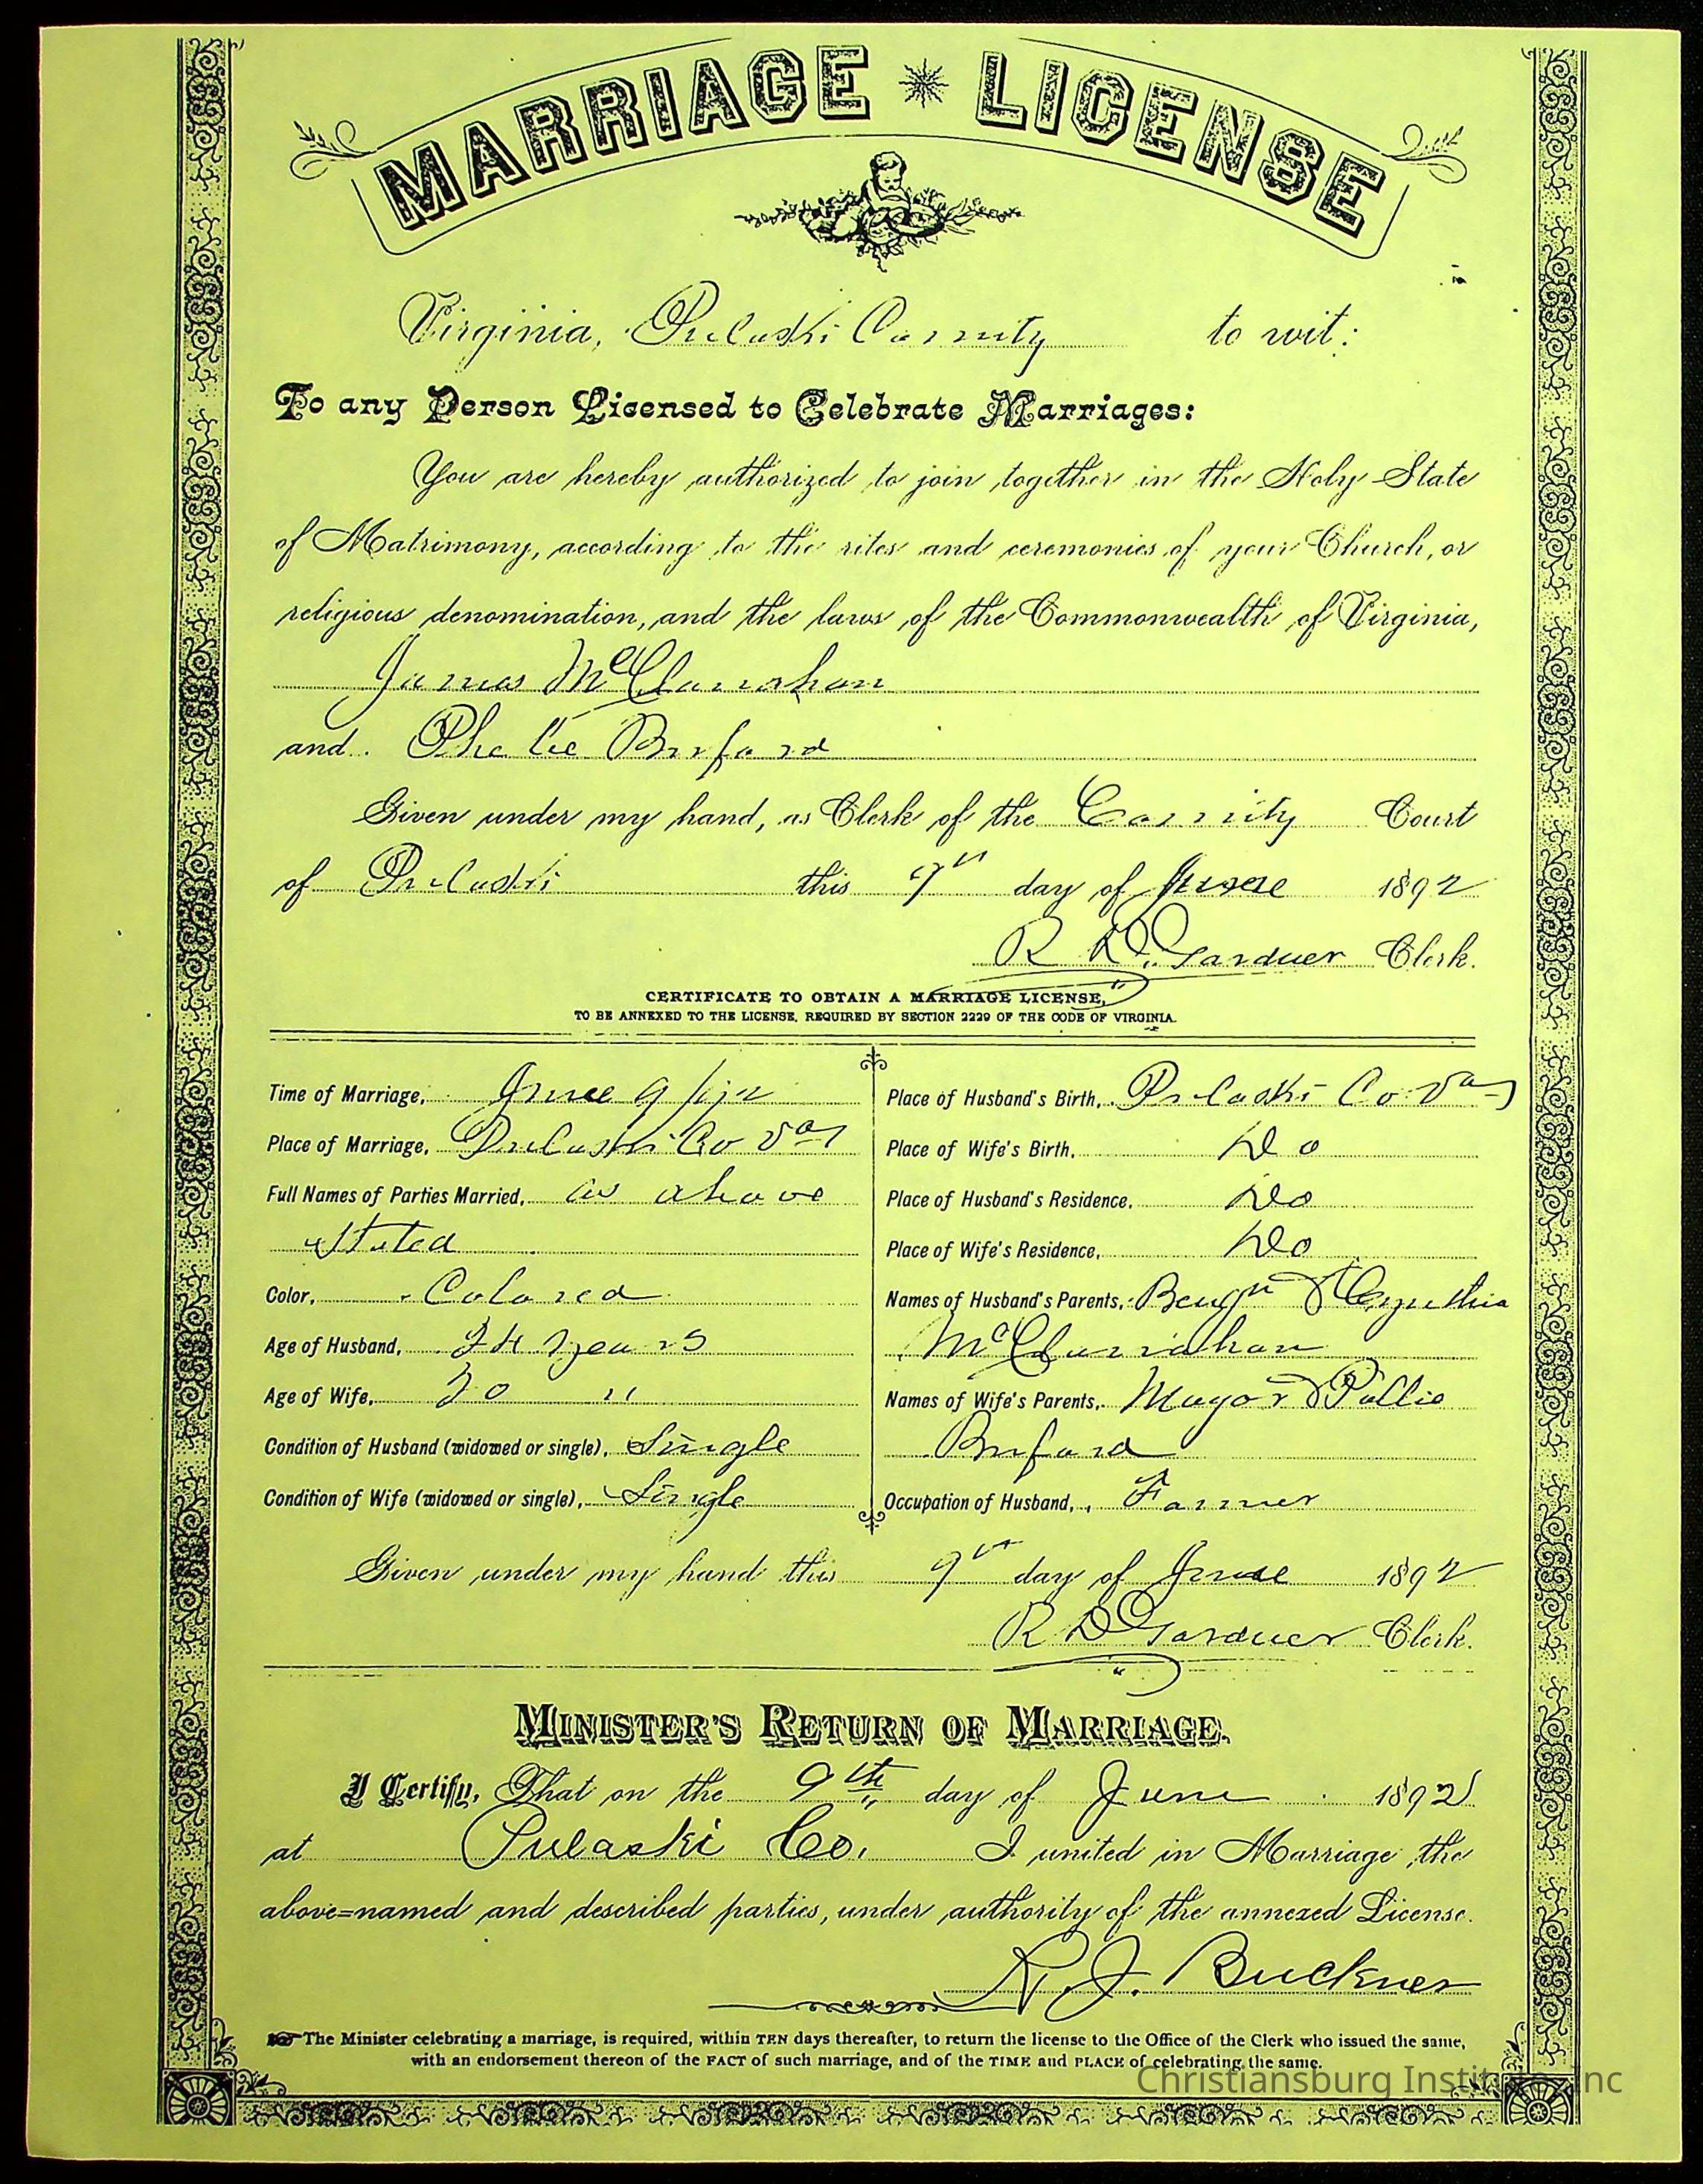 MARRIAGE LICENSE
Virginia, Pulaski County to wit:
To any Person Licensed to Celebrate Marriages:
You are hereby authorized to join together in the Holy State
of Matrimony, according to the rites and ceremonies of your Church, or
religious denomination, and the laws of the Commonwealth of Virginia,
James McClanahan
and Buford
Given under my hand, as Clerk of the County Court
of Pulaski this 9th day of June 1892
R D. Gardner Clerk.
CERTIFICATE TO OBTAIN A MARRIAGE LICENSE,
TO BE ANNEXED TO THE LICENSE, REQUIRED BY SECTION 2229 OF THE CODE OF VIRGINIA.
Time of Marriage, June 9
Place of Marriage, Pulaski Co Va
Full Names of Parties Married, as above
Stated
Color, Colored
Age of Husband, 24 years
Age of Wife, 20 "
Condition of Husband (widowed or single), Single
Condition of Wife (widowed or single), Single
Place of Husband's Birth, Pulaski Co Va
Place of Wife's Birth, Do
Place of Husband's Residence, Do
Place of Wife's Residence, Do
Names of Husband's Parents, Benjn & Cynthia
McClanahan
Names of Wife's Parents, Mayor & Pollie
Buford
Occupation of Husband, Farmer
Given under my hand this 9th day of June 1892
R D Gardner Clerk.
MINISTER'S RETURN OF MARRIAGE.
I Certify, That on the 9th day of June 1892
at Pulaski Co. I united in Marriage the
above=named and described parties, under authority of the annexed License.
R. J. Buckner
The Minister celebrating a marriage, is required, within TEN days thereafter, to return the license to the Office of the Clerk who issued the same,
with an endorsement thereon of the FACT of such marriage, and of the TIME and PLACE of celebrating the same.
Christiansburg Institute, Inc